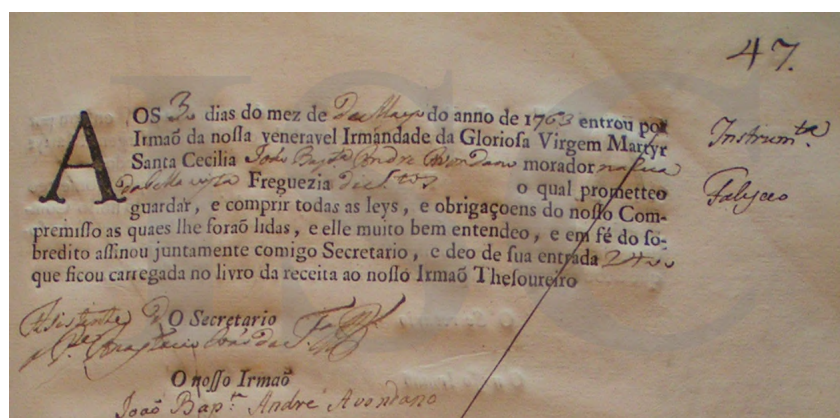 47.
AOS 3 dias do mez de de Mayo do anno de 1763 entrou por
Irmaõ da noſſa veneravel Irmandade da Glorioſa Virgem Martyr
Santa Cecilia João Bapta Andre Avondano morador na rua
da Freguezia de o qual prometteo
guardar, e comprir todas as leys, e obrigaçoens do noſſo Com-
premiſſo as quaes lhe foraõ lidas, e elle muito bem entendeo, e em fé do ſo-
bredito aſſinou juntamente comigo Secretario, e deo de ſua entrada 2400
que ficou carregada no livro da receita ao noſſo Irmaõ Theſoureiro
Instrumta.
Faleceo
Asistente
O Secretario
O noſſo Irmaõ
João Bapta. Andre Avondano
ISC